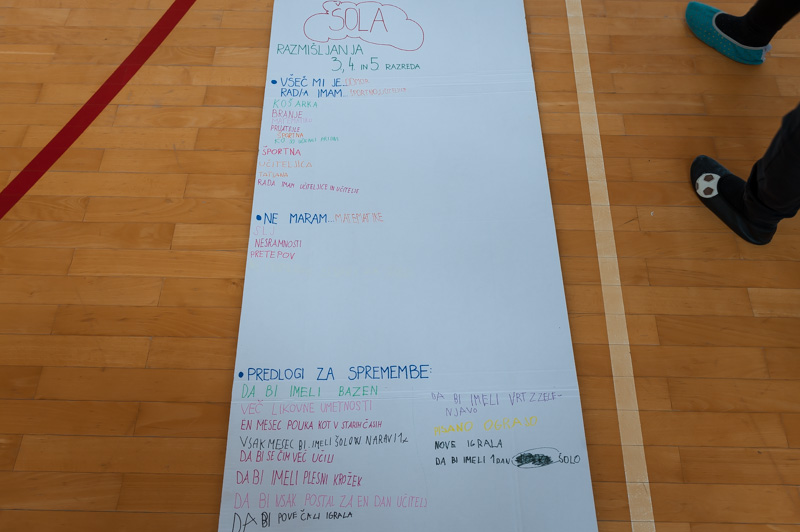 ŠOLA
RAZMIŠLJANJA
3, 4 IN 5 RAZREDA
• VŠEČ MI JE...
RAD/A IMAM...
KOŠARKA
BRANJE
PRIJATELJE
ŠPORTNA
ŠPORTNA
UČITELJICA
TATJANA
RADA IMAM UČITELJICE IN UČITELJE
• NE MARAM... MATEMATIKE
SLJ
NESRAMNOSTI
PRETEPOV
• PREDLOGI ZA SPREMEMBE:
DA BI IMELI BAZEN
VEČ LIKOVNE UMETNOSTI
EN MESEC POUKA KOT V STARIH ČASIH
VSAK MESEC BI IMELI ŠOLO V NARAVI 1x
DA BI SE ČIM VEČ UČILI
DA BI IMELI PLESNI KROŽEK
DA BI VSAK POSTAL ZA EN DAN UČITELJ
DA BI POVEČALI IGRALA
DA BI IMELI VRT Z ZELE-
NJAVO
NOVE IGRALA
DA BI IMELI 1 DAN ŠOLO